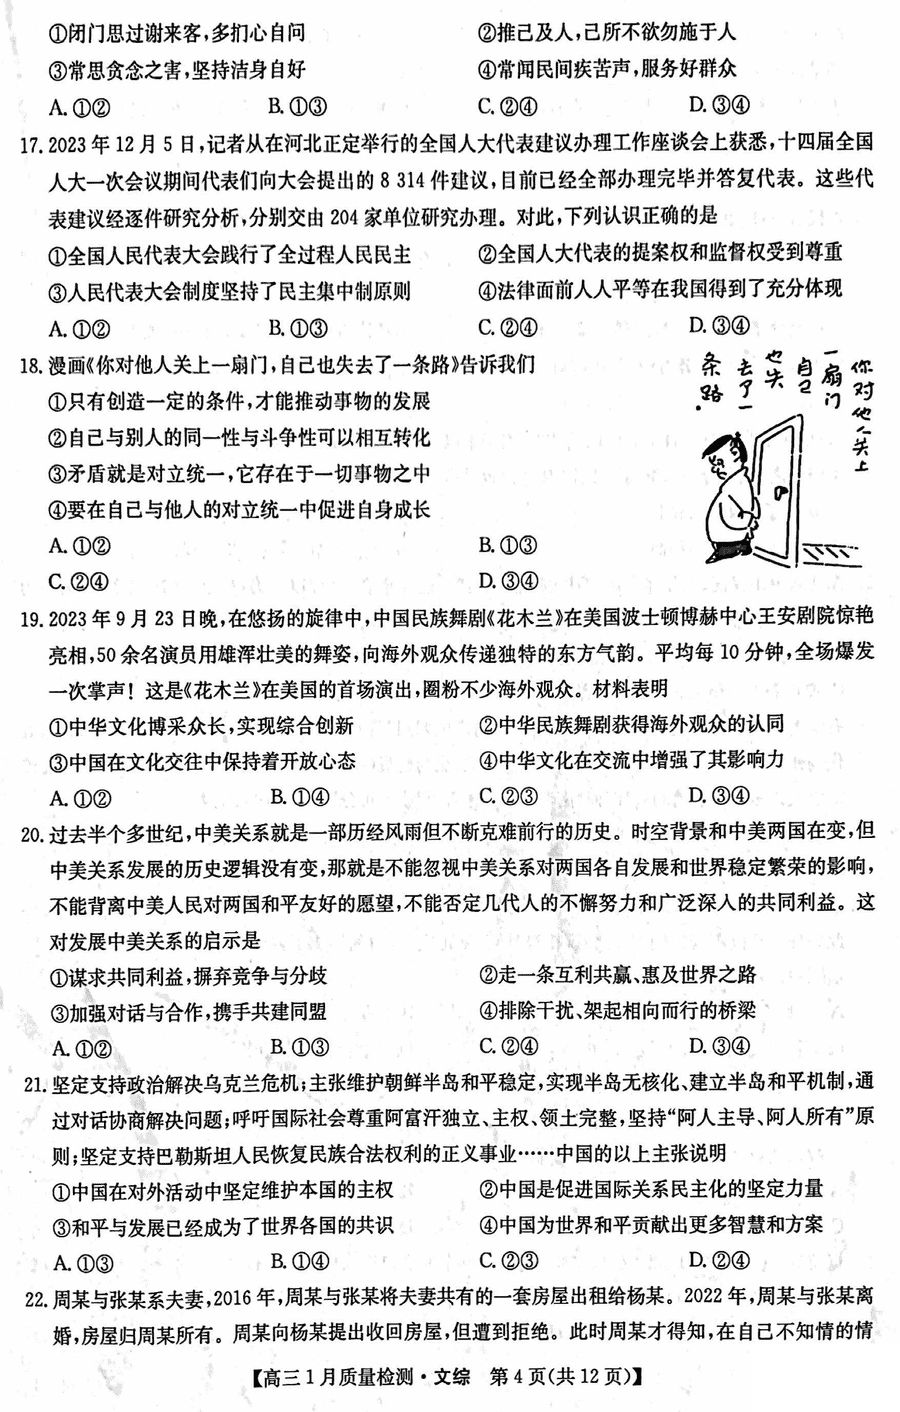 ①闭门思过谢来客,多扪心自问 ②推己及人,己所不欲勿施于人
③常思贪念之害,坚持洁身自好 ④常闻民间疾苦声,服务好群众
A. ①② B. ①③ C. ②④ D. ③④
17. 2023 年 12 月 5 日,记者从在河北正定举行的全国人大代表建议办理工作座谈会上获悉,十四届全国
人大一次会议期间代表们向大会提出的 8 314 件建议,目前已经全部办理完毕并答复代表。这些代
表建议经逐件研究分析,分别交由 204 家单位研究办理。对此,下列认识正确的是
①全国人民代表大会践行了全过程人民民主 ②全国人大代表的提案权和监督权受到尊重
③人民代表大会制度坚持了民主集中制原则 ④法律面前人人平等在我国得到了充分体现
A. ①② B. ①③ C. ②④ D. ③④
18. 漫画《你对他人关上一扇门,自己也失去了一条路》告诉我们
①只有创造一定的条件,才能推动事物的发展
②自己与别人的同一性与斗争性可以相互转化
③矛盾就是对立统一,它存在于一切事物之中
④要在自己与他人的对立统一中促进自身成长
A. ①② B. ①③
C. ②④ D. ③④
你对他人关上
一扇门
自己
也失
去了一
条路.
19. 2023 年 9 月 23 日晚,在悠扬的旋律中,中国民族舞剧《花木兰》在美国波士顿博赫中心王安剧院惊艳
亮相,50 余名演员用雄浑壮美的舞姿,向海外观众传递独特的东方气韵。平均每 10 分钟,全场爆发
一次掌声！这是《花木兰》在美国的首场演出,圈粉不少海外观众。材料表明
①中华文化博采众长,实现综合创新 ②中华民族舞剧获得海外观众的认同
③中国在文化交往中保持着开放心态 ④中华文化在交流中增强了其影响力
A. ①② B. ①④ C. ②③ D. ③④
20. 过去半个多世纪,中美关系就是一部历经风雨但不断克难前行的历史。时空背景和中美两国在变,但
中美关系发展的历史逻辑没有变,那就是不能忽视中美关系对两国各自发展和世界稳定繁荣的影响,
不能背离中美人民对两国和平友好的愿望,不能否定几代人的不懈努力和广泛深入的共同利益。这
对发展中美关系的启示是
①谋求共同利益,摒弃竞争与分歧 ②走一条互利共赢、惠及世界之路
③加强对话与合作,携手共建同盟 ④排除干扰、架起相向而行的桥梁
A. ①② B. ①③ C. ②④ D. ③④
21. 坚定支持政治解决乌克兰危机;主张维护朝鲜半岛和平稳定,实现半岛无核化、建立半岛和平机制,通
过对话协商解决问题;呼吁国际社会尊重阿富汗独立、主权、领土完整,坚持“阿人主导、阿人所有”原
则;坚定支持巴勒斯坦人民恢复民族合法权利的正义事业……中国的以上主张说明
①中国在对外活动中坚定维护本国的主权 ②中国是促进国际关系民主化的坚定力量
③和平与发展已经成为了世界各国的共识 ④中国为世界和平贡献出更多智慧和方案
A. ①③ B. ①④ C. ②③ D. ②④
22. 周某与张某系夫妻,2016 年,周某与张某将夫妻共有的一套房屋出租给杨某。2022 年,周某与张某离
婚,房屋归周某所有。周某向杨某提出收回房屋,但遭到拒绝。此时周某才得知,在自己不知情的情
【高三 1 月质量检测·文综 第 4 页(共 12 页)】